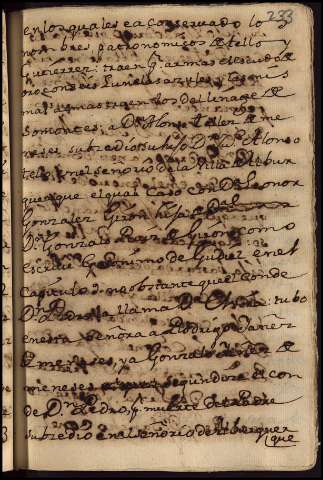 233
en los quales ea conservado los
nombres patronomicos de tello y
Gutierrez. traen por armas el escudo de
oro con seis Luneles azules y las mis
mas armas traen los del linage de
Somontes, a Dn Alonso tellez de me
neses subcedio su hijo Dn Alonso
tellez en el Señorio de la Villa de Albur
querque el qual caso con Da Leonor
Gonzalez Giron hija de
Dn Gonzalo Ruiz Giron como
Escrive Geronimo de Gudiel en el
Capitulo no obstante que el Conde
Dn Pedro la llama Da Elvira. tubo
en esta Señora a Rodrigo Yañez
de meneses, ya Gonzalo Yañez de
meneses segundo de el con
de Dn Pedro, y muerto
subcedio en el Señorio de Alburquer
que